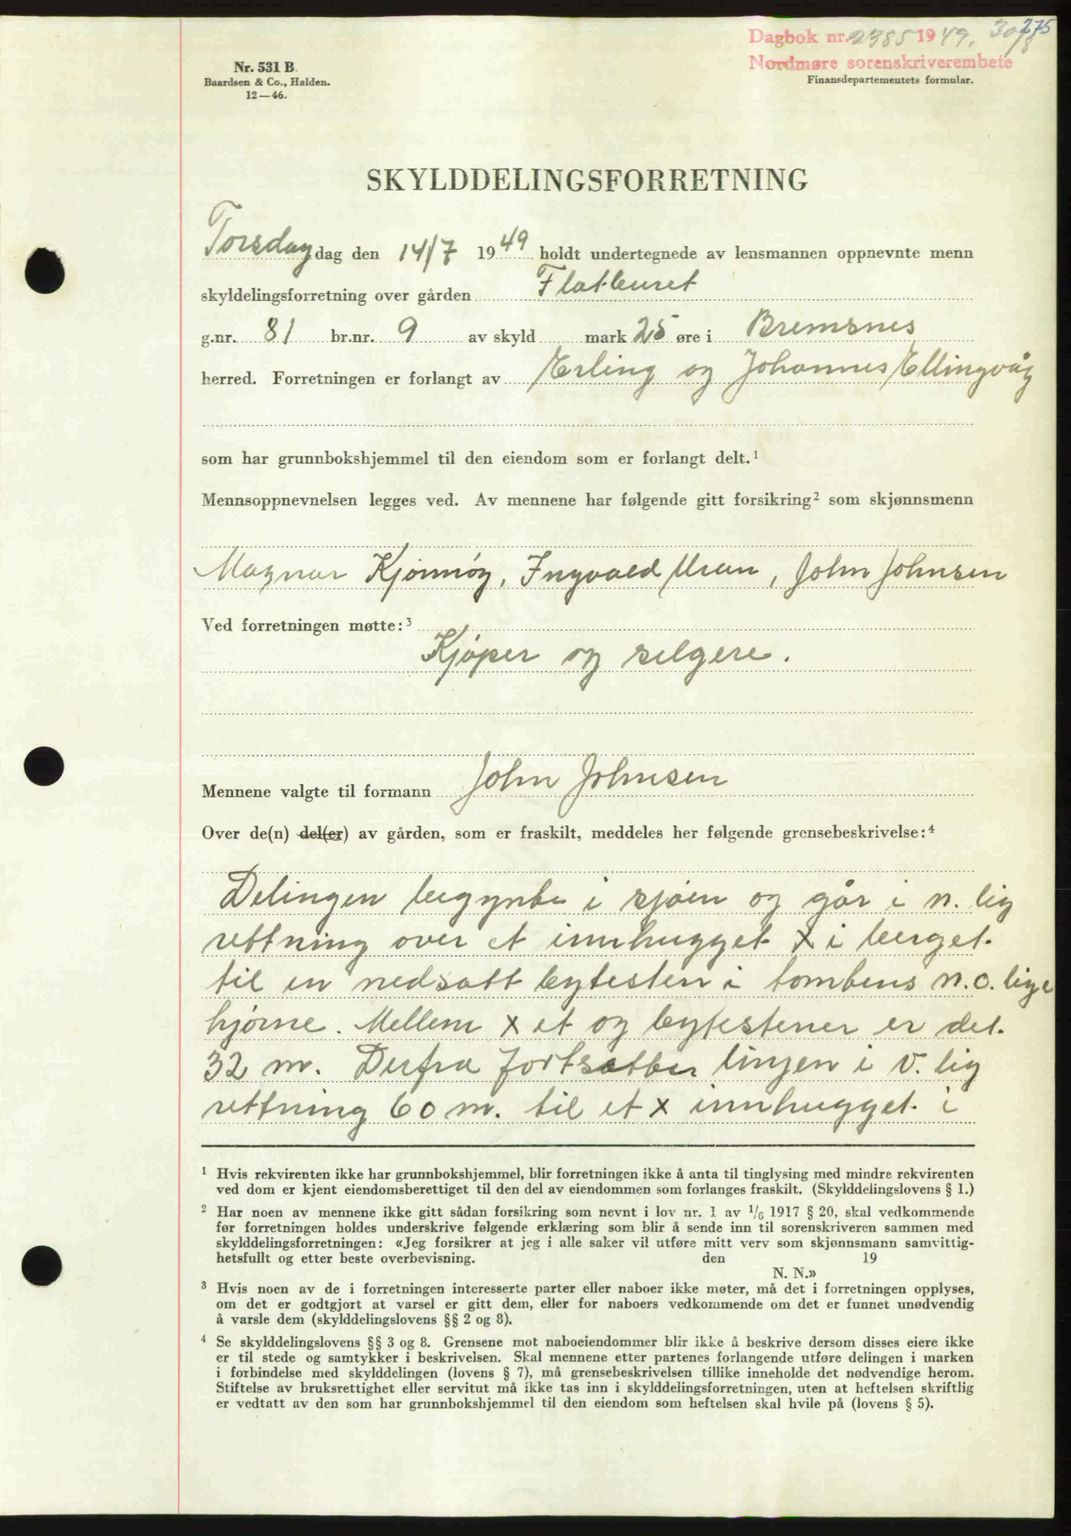 275
Dagbok nr. 2385 1949. 30/8
Nordmøre sorenskriverembete
Nr. 531 B.
Baardsen & Co., Halden.
12—46.
Finansdepartementets formular.
SKYLDDELINGSFORRETNING
Torsdag dag den 14/7 1949 holdt undertegnede av lensmannen oppnevnte menn
skyldelingsforretning over gården Flatleuset
g.nr. 81 br.nr. 9 av skyld mark 25 øre i Bremsnes
herred. Forretningen er forlangt av Erling og Johannes Ellingvåg
som har grunnbokshjemmel til den eiendom som er forlangt delt.¹
Mennsoppnevnelsen legges ved. Av mennene har følgende gitt forsikring² som skjønnsmenn
Magnar Kjønnøy, Ingvald Uran, John Johnsen
Ved forretningen møtte:³
Kjøper og selgere.
Mennene valgte til formann John Johnsen
Over de(n) del(er) av gården, som er fraskilt, meddeles her følgende grensebeskrivelse:⁴
Delingen begynte i sjøen og går i n. lig
rettning over et innhugget x i berget
til en nedsatt bytesten i tomtens n.o. lige
hjørne. Mellem x et og bytestener er det
32 m. Derfra fortsetter linjen i v. lig
rettning 60 m. til et x innhugget i
¹ Hvis rekvirenten ikke har grunnbokshjemmel, blir forretningen ikke å anta til tinglysing med mindre rekvirenten
ved dom er kjent eiendomsberettiget til den del av eiendommen som forlanges fraskilt. (Skylddelingslovens § 1.)
² Har noen av mennene ikke gitt sådan forsikring som nevnt i lov nr. 1 av 1/6 1917 § 20, skal vedkommende
før forretningen holdes underskrive følgende erklæring som blir å sende inn til sorenskriveren sammen med
skylddelingsforretningen: «Jeg forsikrer at jeg i alle saker vil utføre mitt verv som skjønnsmann samvittig-
hetsfullt og etter beste overbevisning. den 19
N. N.»
³ Hvis noen av de i forretningen interesserte parter eller naboer ikke møter, må det i forretningen opplyses,
om det er godtgjort at varsel er gitt dem, eller for naboers vedkommende om det er funnet unødvendig
å varsle dem (skylddelingslovens §§ 2 og 8).
⁴ Se skylddelingslovens §§ 3 og 8. Grensene mot naboeiendommer blir ikke å beskrive dersom disses eiere ikke
er til stede og samtykker i beskrivelsen. Skal mennene etter partenes forlangende utføre delingen i marken
i forbindelse med skylddelingen (lovens § 7), må grensebeskrivelsen tillike inneholde det nødvendige herom.
Stiftelse av bruksrettighet eller servitut må ikke tas inn i skylddelingsforretningen, uten at heftelsen skriftlig
er vedtatt av den som har grunnbokshjemmel til den eiendom som heftelsen skal hvile på (lovens § 5).